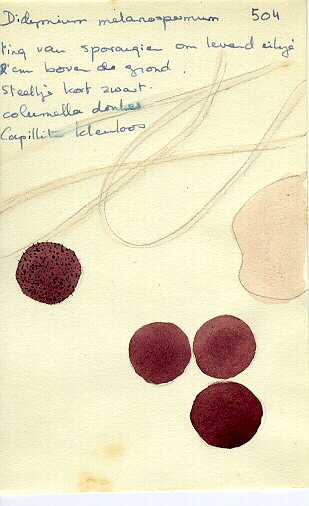 Didymium melanospermum 504
ring van sporangien om levend eikje
2 cm boven de grond.
Steeltje kort zwart.
columella donker
Capillit. kleurloos